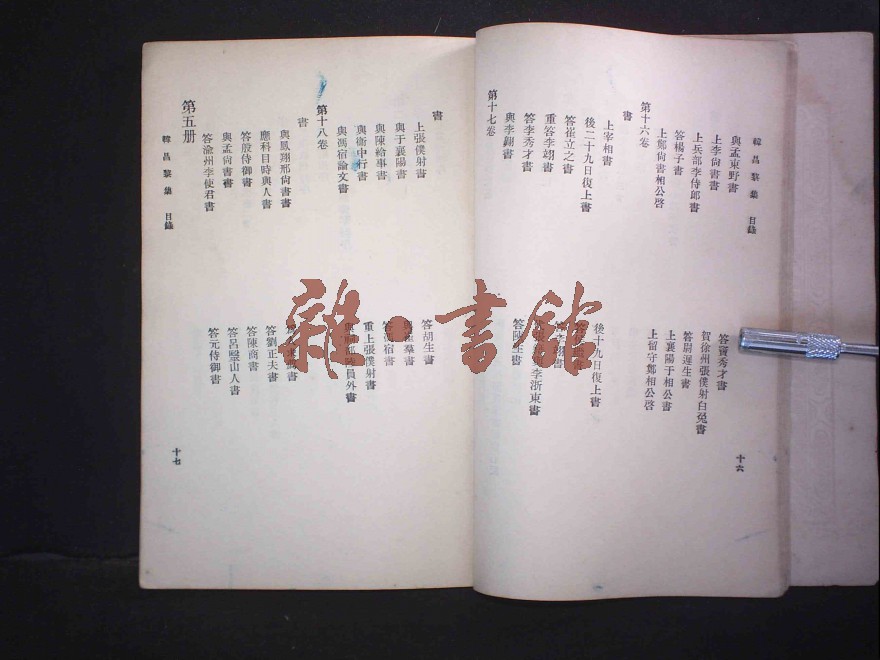 韓昌黎集 目錄
與孟東野書
答竇秀才書
上李尚書書
賀徐州張僕射白兔書
上兵部李侍郎書
答尉遲生書
答楊子書
上襄陽于相公書
上鄭尚書相公啓
上留守鄭相公啓
第十六卷
書
上宰相書
後十九日復上書
後二十九日復上書
答崔立之書
重答李翊書
答李秀才書
答陳生書
與李翺書
第十七卷
十六
書
上張僕射書
答胡生書
與于襄陽書
與陳給事書
答馮宿書
與衛中行書
重上張僕射書
與馮宿論文書
第十八卷
書
與鳳翔邢尚書書
應科目時與人書
答劉正夫書
答殷侍御書
答陳商書
與孟尚書書
答呂毉山人書
答渝州李使君書
答元侍御書
第五册
韓昌黎集 目錄
十七
雜·書館